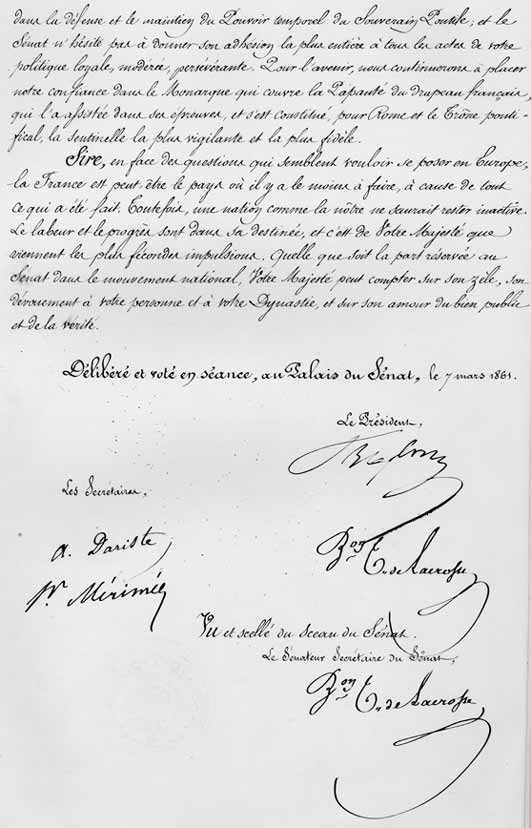 dans la défense et le maintien du Pouvoir temporel du Souverain Pontife; et le
Sénat n'hésite pas à donner son adhésion la plus entière à tous les actes de votre
politique loyale, modérée, persévérante. Pour l'avenir, nous continuerons à placer
notre confiance dans le Monarque qui couvre la Papauté du drapeau français,
qui l'a assistée dans ses épreuves, et s'est constitué, pour Rome et le Trône ponti-
fical, la sentinelle la plus vigilante et la plus fidèle.
Sire, en face des questions qui semblent vouloir se poser en Europe,
la France est peut être le pays où il y a le moins à faire, à cause de tout
ce qui a été fait. Toutefois, une nation comme la nôtre ne saurait rester inactive.
Le labeur et le progrès sont dans sa destinée, et c'est de Votre Majesté que
viennent les plus fécondes impulsions. Quelle que soit la part réservée au
Sénat dans le mouvement national, Votre Majesté peut compter sur son zèle, son
dévouement à votre personne et à votre Dynastie, et sur son amour du bien public
et de la vérité.
Délibéré et voté en séance, au Palais du Sénat, le 7 mars 1861.
Le Président,
Les Secrétaires,
A. Dariste
Pr Mérimée
Bon T. de Lacrosse
Vu et scellé du sceau du Sénat.
Le Sénateur Secrétaire du Sénat,
Bon T. de Lacrosse